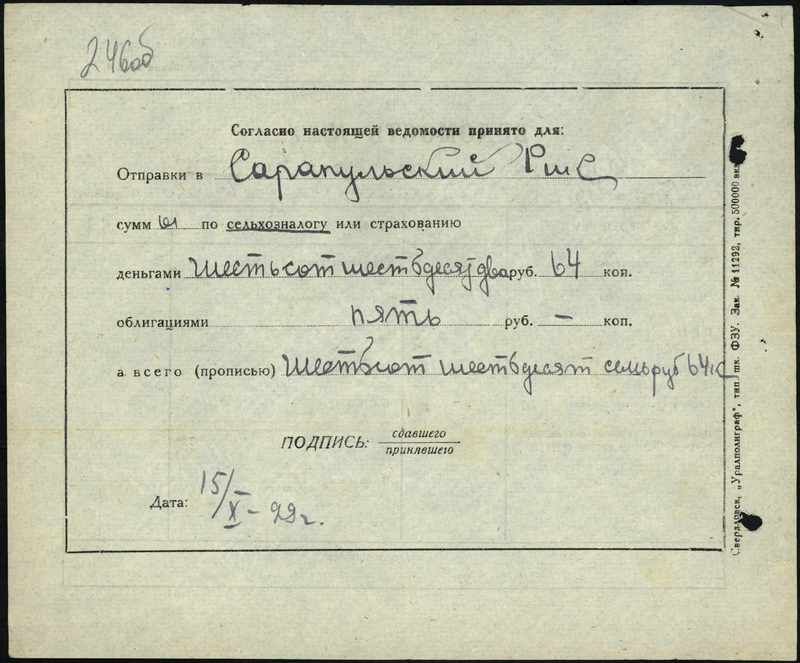 246об
Согласно настоящей ведомости принято для:
Отправки в Сарапульский РИК
сумм ы по сельхозналогу или страхованию
деньгами Шестьсот шестьдесят два руб. 64 коп.
облигациями пять руб. — коп.
а всего (прописью) Шестьсот шестьдесят семь руб 64 к
ПОДПИСЬ: сдавшего
принявшего
Дата: 15/X – 29 г.
Свердловск, „Уралполиграф", тип. шк. ФЗУ. Зак. № 11292, тир. 500000 экз.